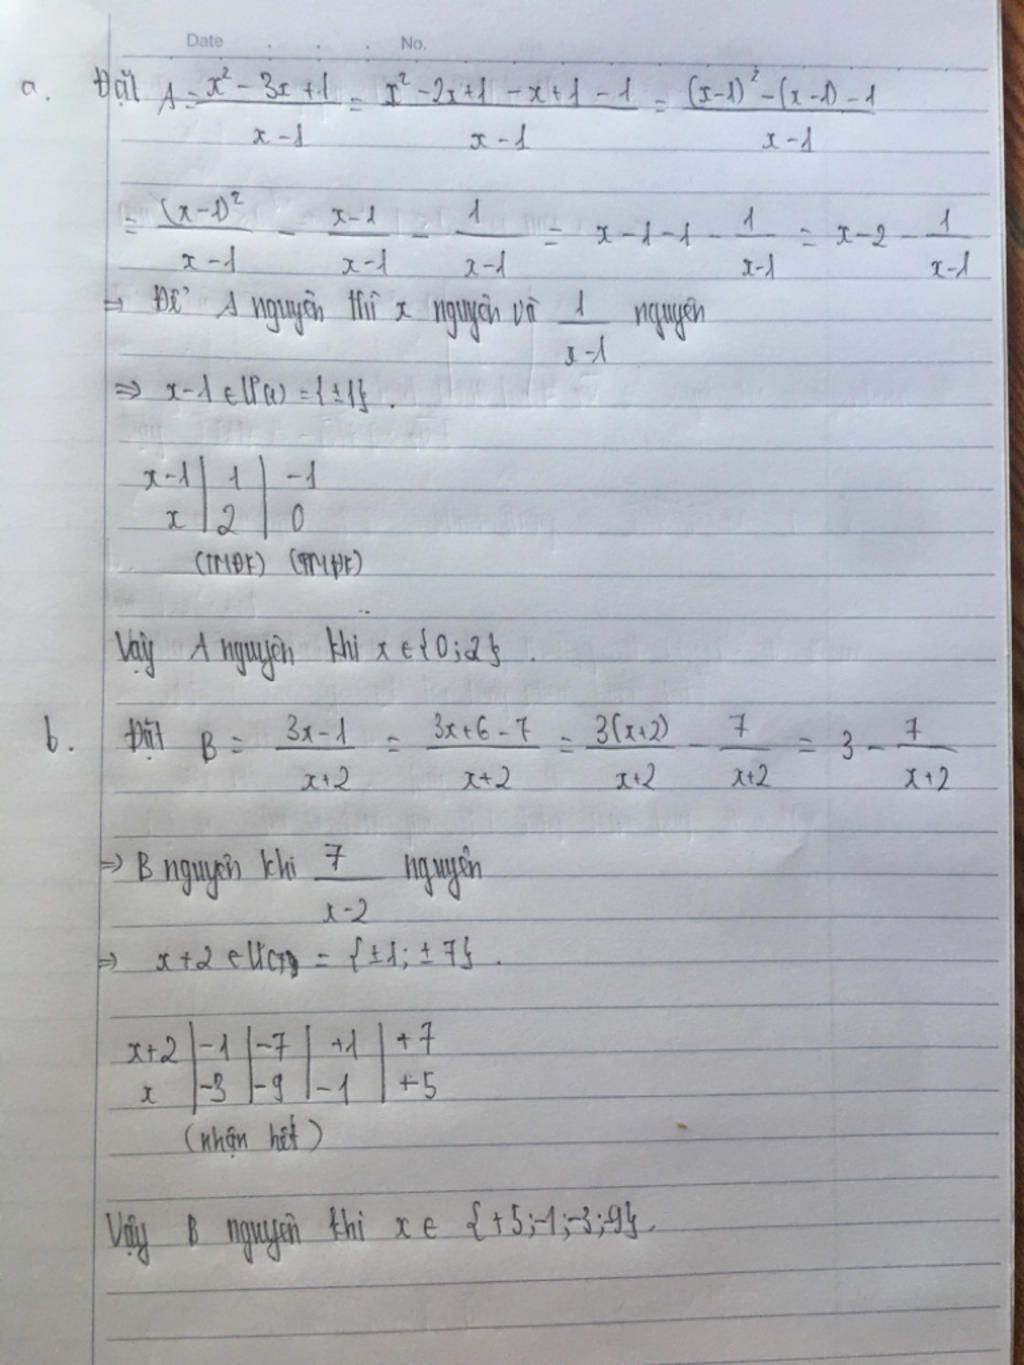 Date . . . No.
a. Đặt A = \frac{x² - 3x + 1}{x - 1} = \frac{x² - 2x + 1 - x + 1 - 1}{x - 1} = \frac{(x-1)² - (x-1) - 1}{x - 1}
= \frac{(x-1)²}{x-1} - \frac{x-1}{x-1} - \frac{1}{x-1} = x - 1 - 1 - \frac{1}{x-1} = x - 2 - \frac{1}{x-1}
⇒ Để A nguyên thì x nguyên và \frac{1}{x-1} nguyên
⇒ x - 1 ∈ Ư(1) = {±1}.
x-1 | 1 | -1
x | 2 | 0
(TMĐK) (TMĐK)
Vậy A nguyên khi x ∈ {0; 2}.
b. Đặt B = \frac{3x - 1}{x+2} = \frac{3x+6-7}{x+2} = \frac{3(x+2)}{x+2} - \frac{7}{x+2} = 3 - \frac{7}{x+2}
⇒ B nguyên khi \frac{7}{x-2} nguyên
⇒ x+2 ∈ Ư(7) = {±1; ±7}.
x+2 | -1 | -7 | +1 | +7
x | -3 | -9 | -1 | +5
(nhận hết)
Vậy B nguyên khi x ∈ {+5;-1;-3;-9}.